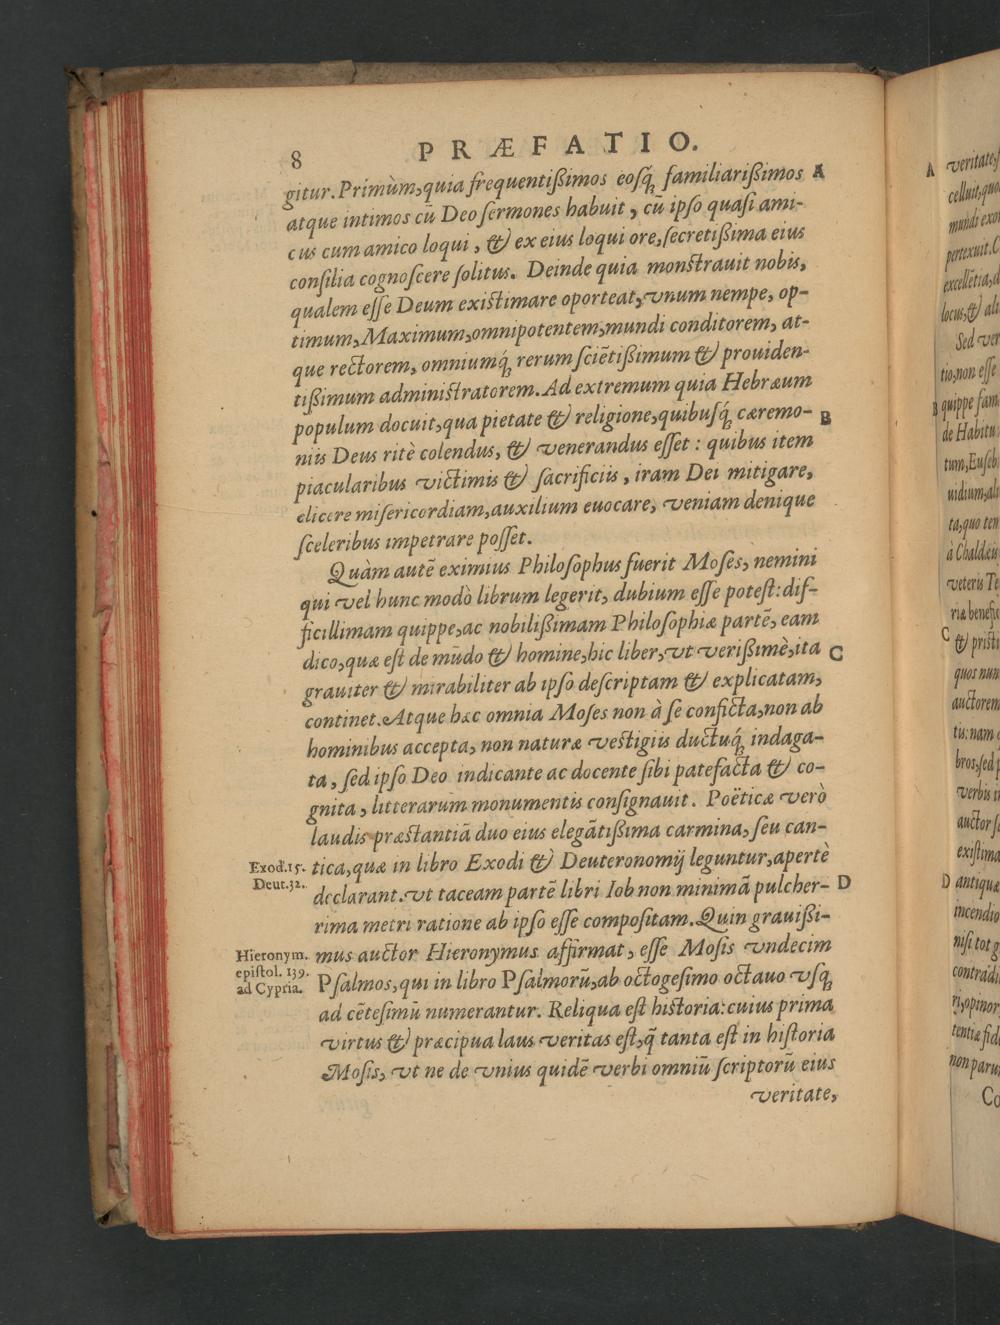 8 PRÆFATIO.
gitur. Primùm, quia frequentißimos eosq́ꝫ familiarißimos A
atque intimos cũ Deo ſermones habuit, cũ ipſo quaſi ami-
cus cum amico loqui, & ex eius loqui ore, ſecretißima eius
conſilia cognoſcere ſolitus. Deinde quia monſtrauit nobis,
qualem eſſe Deum exiſtimare oporteat, vnum nempe, op-
timum, Maximum, omnipotentem, mundi conditorem, at-
que rectorem, omniumq́ꝫ rerum ſciẽtißimum & prouiden-
tißimum adminiſtratorem. Ad extremum quia Hebræum
populum docuit, qua pietate & religione, quibuſq́ꝫ cæremo- B
niis Deus ritè colendus, & venerandus eſſet: quibus item
piacularibus victimis & ſacrificiis, iram Dei mitigare,
elicere miſericordiam, auxilium euocare, veniam denique
ſceleribus impetrare poſſet.
Quàm autẽ eximius Philoſophus fuerit Moſes, nemini
qui vel hunc modò librum legerit, dubium eſſe poteſt: dif-
ficillimam quippe, ac nobilißimam Philoſophiæ partẽ, eam
dico, quæ eſt de mũdo & homine, hic liber, vt verißimè, ita C
grauiter & mirabiliter ab ipſo deſcriptam & explicatam,
continet. Atque hæc omnia Moſes non à ſe conficta, non ab
hominibus accepta, non naturæ veſtigiis ductuq́ꝫ indaga-
ta, ſed ipſo Deo indicante ac docente ſibi patefacta & co-
gnita, litterarum monumentis conſignauit. Poëticæ verò
laudis præſtantiã duo eius elegãtißima carmina, ſeu can-
Exod. 15. tica, quæ in libro Exodi & Deuteronomij leguntur, apertè
Deut. 32. declarant. vt taceam partẽ libri Iob non minimã pulcher- D
rima metri ratione ab ipſo eſſe compoſitam. Quin grauißi-
Hieronym. mus auctor Hieronymus affirmat, eſſe Moſis vndecim
epiſtol. 139.
ad Cypria. Pſalmos, qui in libro Pſalmorũ, ab octogeſimo octauo vſqꝫ
ad cẽteſimũ numerantur. Reliqua eſt hiſtoria: cuius prima
virtus & præcipua laus veritas eſt, q̃ tanta eſt in hiſtoria
Moſis, vt ne de vnius quidẽ verbi omniũ ſcriptorũ eius
veritate,
A veritate,
mundi
pertexuit.
excellẽtia,
locus, &
Sed
tio, non eſſe
B quippe
de Habitu
tum,
ta, quo
à Chaldæis
veteris
C &
quos
tis: nam
verbis
auctor
D antiquæ
incendio
niſi tot
tentiæ
non